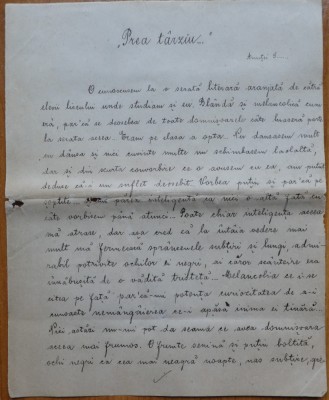 „Prea târziu..."
O cunoscusem la o serată literară aranjată de către
elevii liceului unde studiam și eu. Blândă și melancolică cum
eră, par'că se deosebea de toate domnișoarele câte luaseră parte
la serata aceea. Eram pe clasa a opta. Nu dansasem mult
cu dânsa și nici cuvinte multe nu schimbasem laolaltă,
dar și din scurta convorbire ce o avusem cu ea, am putut
deduce că-i un suflet deosebit. Vorbea puțin și par'că pe
șoptite părea inteligentă cu nici o altă fată cu
câte vorbisem până atunci. Poate chiar inteligența aceea
mă atrase, dar ușa cred că la întâia vedere mai
mult mă fermecară sprâncenele subțiri și lungi, admi-
rabil potrivite ochilor ei negri, ai căror scânteiere era
înăbușită de o vădită tristeță... Melancolia ce i se
citea pe față par'că-mi potența curiozitatea de a-i
cunoaște nemângâierea ce-i apăsă inima ei tânără.
Nici astăzi nu-mi pot da seamă ce avea domnișoara
aceea mai frumos. O frunte senină și puțin boltită,
ochi negri ca cea mai neagră noapte, nas subțire,